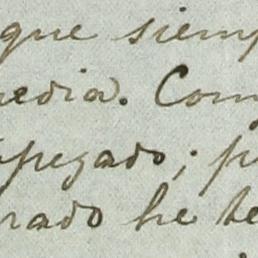 que siemp
edia. Com
pegado; p
rado he te